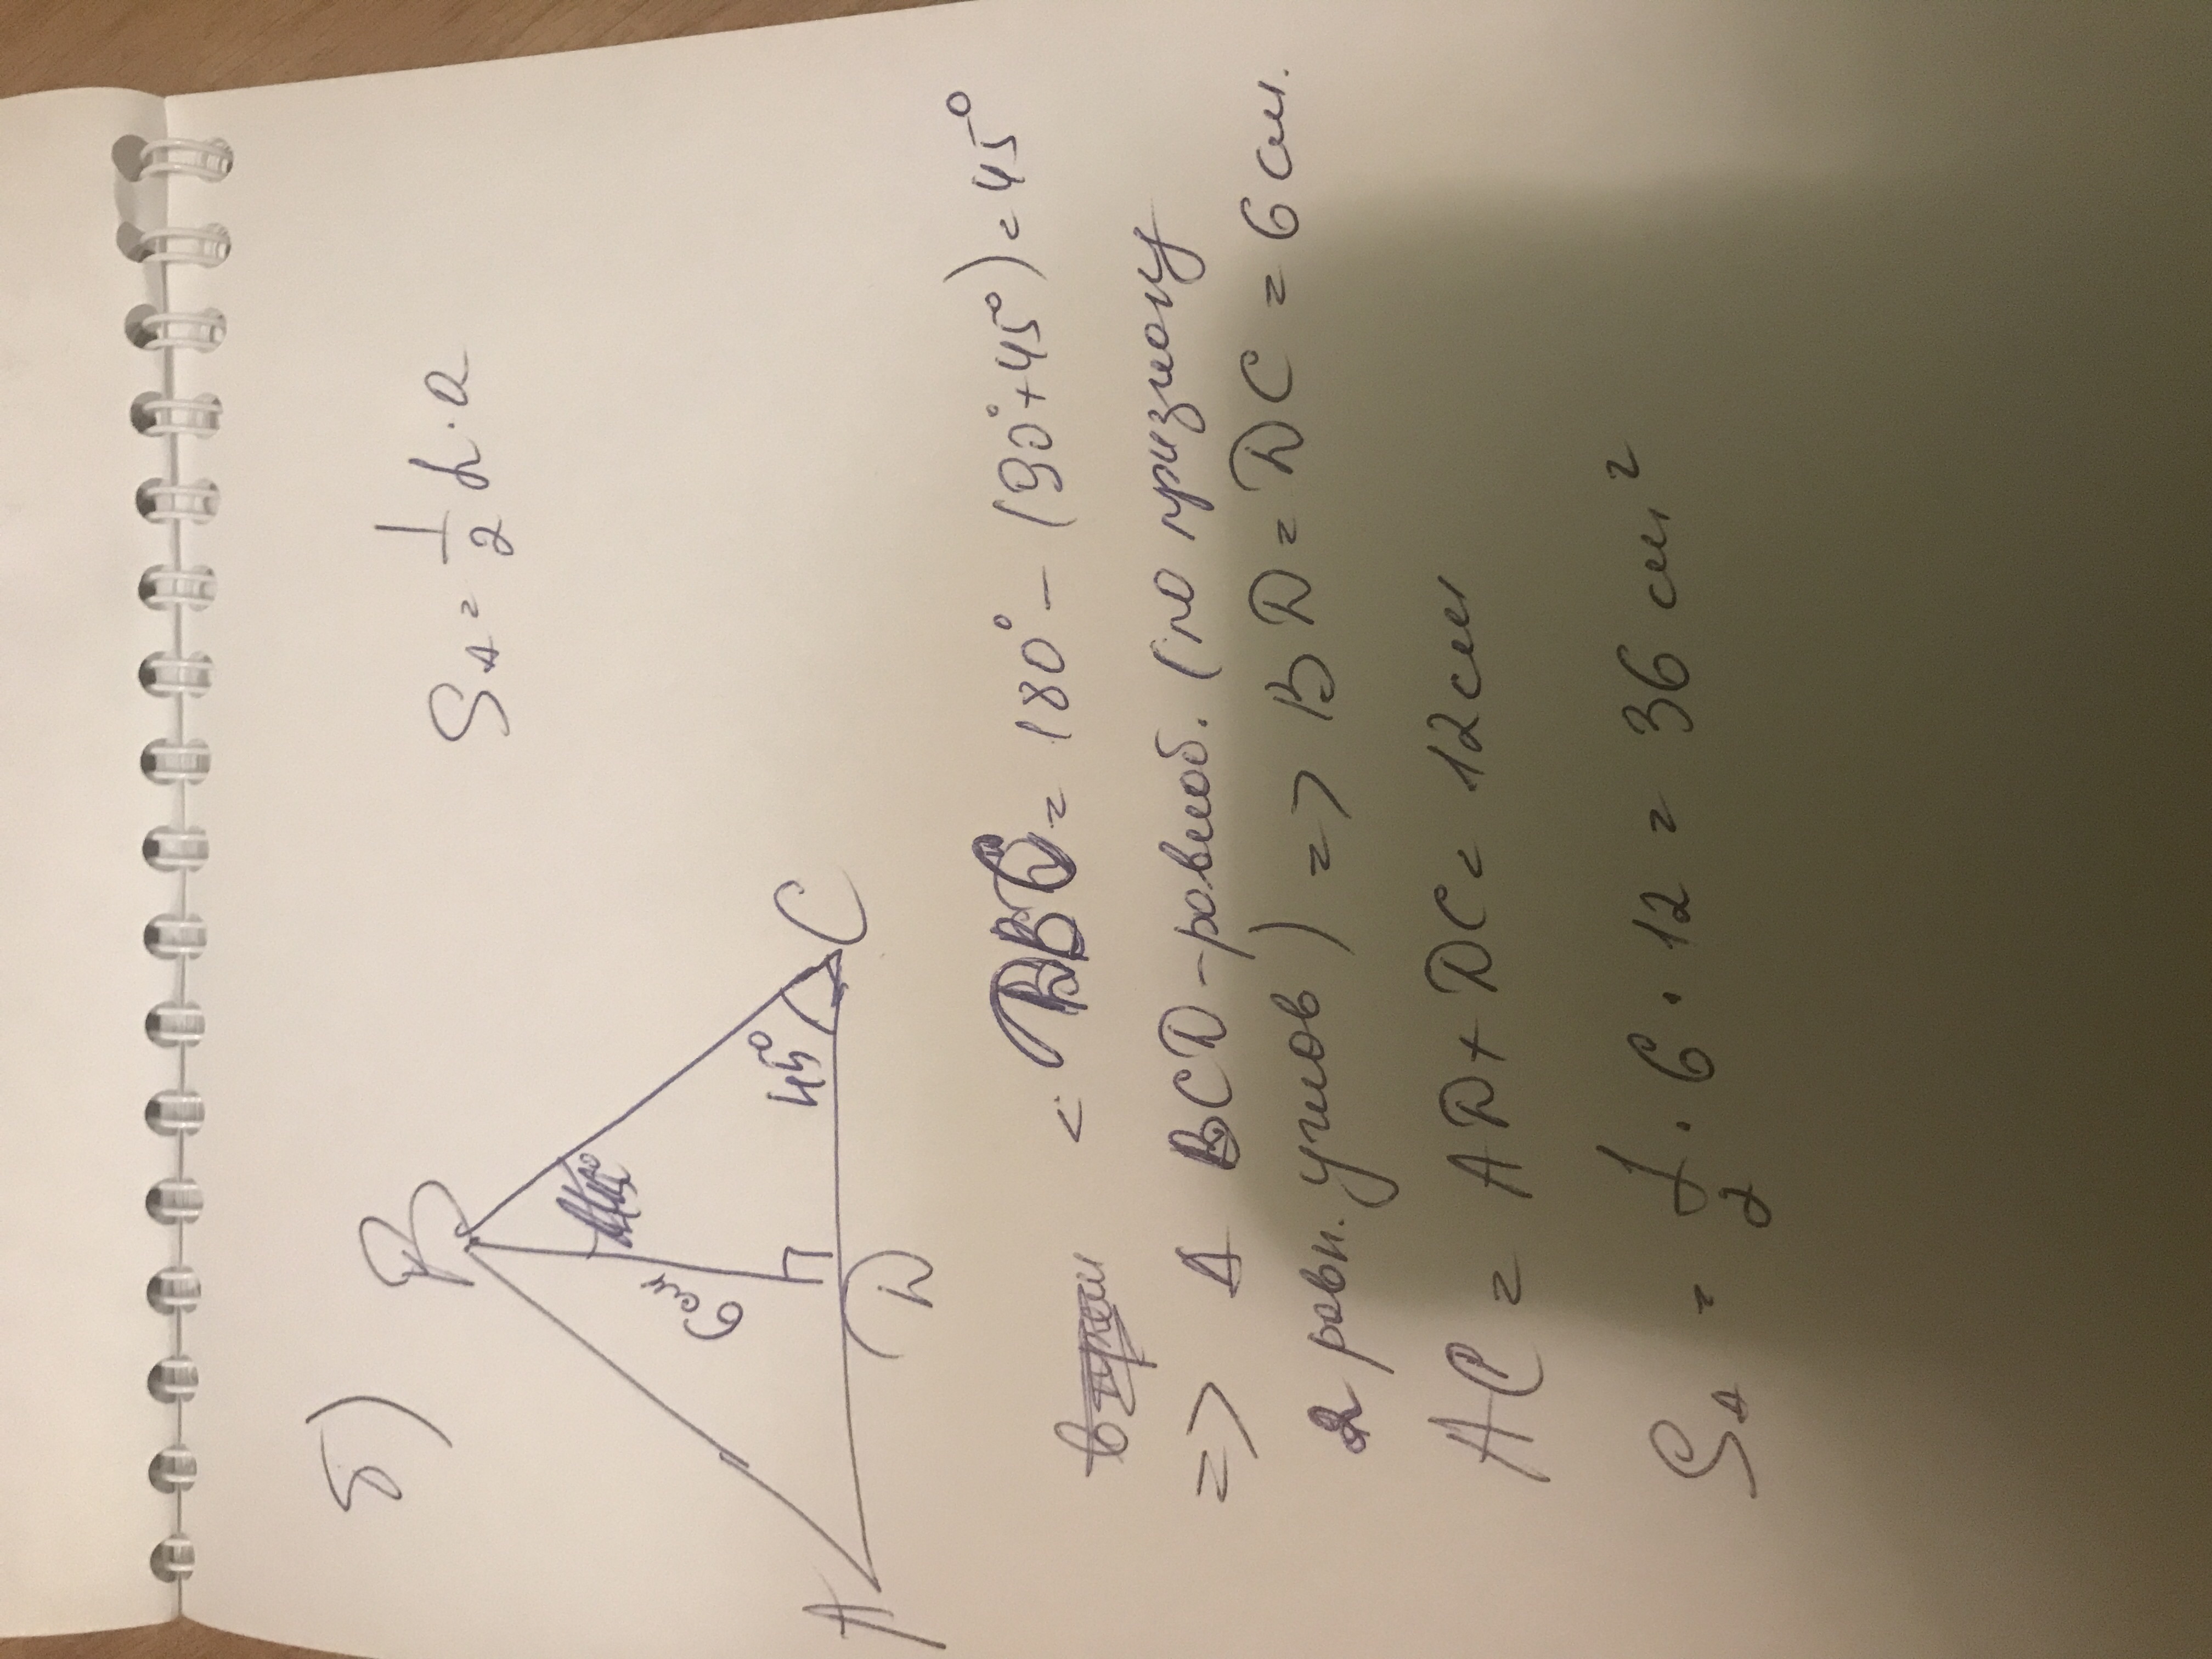 б)
S△ = 1/2 h · a
B
6см
45°
A
D
C
< DBC = 180° - (90° + 45°) = 45°
=> △ BCD - равноб. (по признаку
2 равн. углов) => BD = DC = 6 см.
AC = AD + DC = 12 см
S△ = 1/2 · 6 · 12 = 36 см²